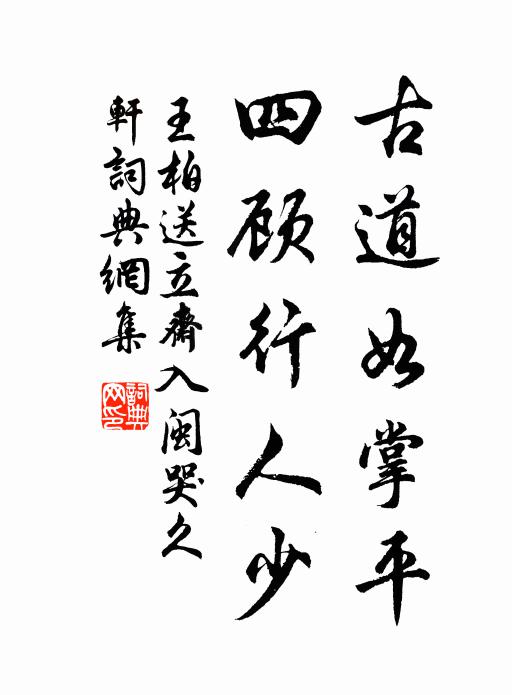 古道如掌平
四顾行人少
王柏送立齋入闽哭久
軒詞典網集
詞典網印